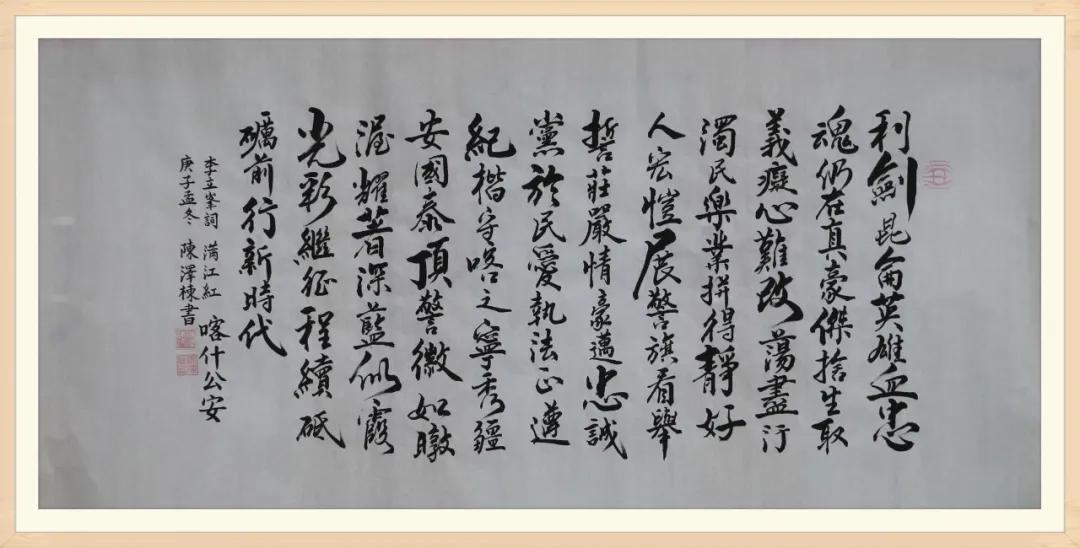 利劍昆侖英雄血忠
魂仍在真豪傑捨生取
義癡心難改蕩盡汙
濁民樂業拼得靜好
人宏愷展警旗看舉
誓莊嚴情豪邁忠誠
黨於民愛執法正遵
紀楷守喀之寧秀疆
安國泰頂警徽如暾
渥耀著深藍似霞
光彩繼征程續砥
礪前行新時代
李立峯詞 滿江紅 喀什公安
庚子孟冬 陳澤棟書